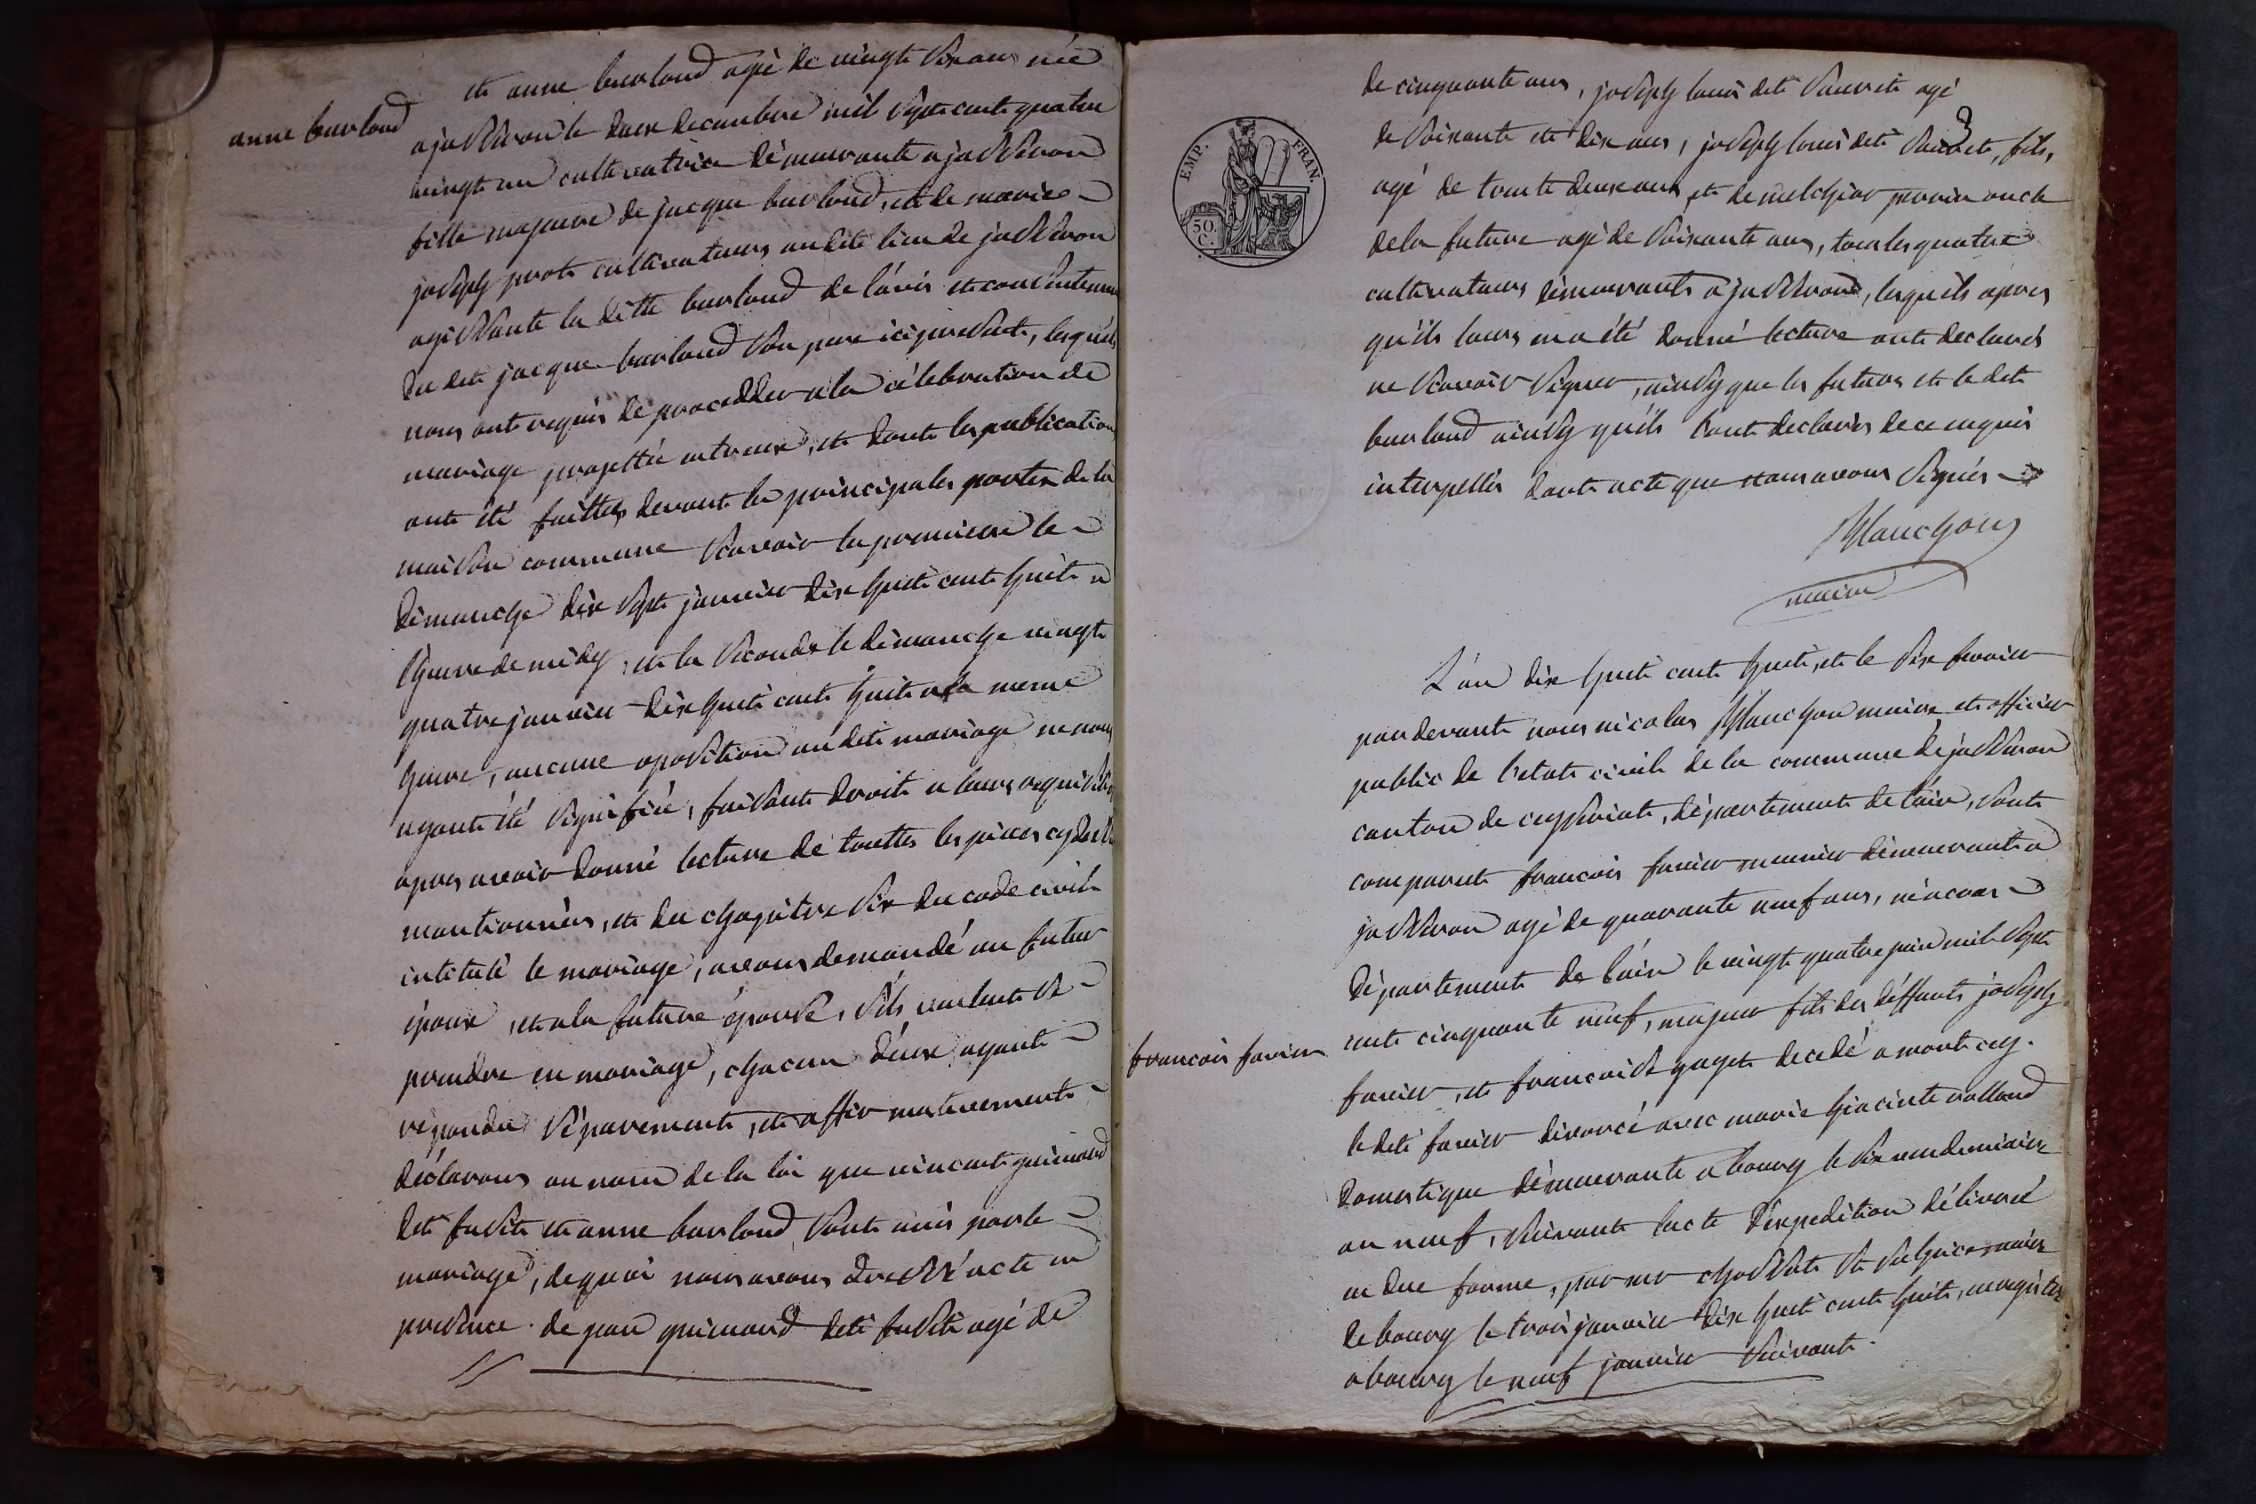 anne burloud
et anne burloud agé de vingt six ans née
a jasseron le douze decembre mil sept cent quatre
vingt un cultivatrice démeurante a jasseron
fille majeure de jacque burloud, et de marie
joseph prots cultivateurs au dit lieu de jasseron
agissante la ditte burloud de l'avis et consentement
du dit jacque burloud son pere ici present, lesquels
nous ont requis de procedder a la célebration de
mariage projettée entreux, et dont les publications
ont été faittes devant les principales portes de la
maison commune scavoir la premiere le
dimanche dix sept janvier dix huit cent huit a
l'heure de midy, et la seconde le dimanche vingt
quatre janvier dix huit cent huit a la meme
heure, aucune oposition au dit mariage ne nous
ayant été signifiée, faisant droit a leurs requisition
apres avoir donné lecture de touttes les pieces cy dessus
mentionnées, et du chapitre six du code civil
intitulé le mariage, avons demandé au futur
époux, et a la future épouse, s'ils veulent se
prendre en mariage, chacun d'eux ayant
répondu séparement, et affirmativement
déclarons au nom de la loi que vincent guinand
dit fusit et anne burloud, sont unis par le
mariage, de quoi nous avons dressé acte en
presence de jean guinand dit fusit agé de
3
EMP. FRAN.
50. C.
de cinquante ans, joseph louis dit agé
de soixante et dix ans, joseph louis dit fils,
agé de trente deux ans, et de melchior perrin oncle
de la future agé de soixante ans, tous les quatre
cultivateurs démeurants a jasseron, lesquels apres
qu'ils leurs en a été donné lecture ont declarés
ne scavoir signer, ainsy que les futurs et le dit
burloud ainsy qu'ils l'ont declarés de ce enquis
interpellés dont acte que nous avons signés
Planchon
maire
françois favier
L'an dix huit cent huit, et le six fevrier
pardevant nous nicolas Planchon maire et officier
public de l'etat civil de la commune de jasseron
canton de ceyseriat, département de l'ain, sont
comparut françois favier meunier démeurant a
jasseron agé de quarante neuf ans, né a
département de l'ain le vingt quatre juin mil sept
cent cinquante neuf, majeur fils des déffunts joseph
favier, et françoise gaget decedé a montcey.
le dit favier divorcé avec marie hiacinte rolland
domestique démeurante a bourg le six vendemiaire
an neuf, suivant l'acte d'expedition délivré
en due forme, par mr chossat st sulpice maire
de bourg le trois janvier dix huit cent huit, enregistré
a bourg le neuf janvier suivant.